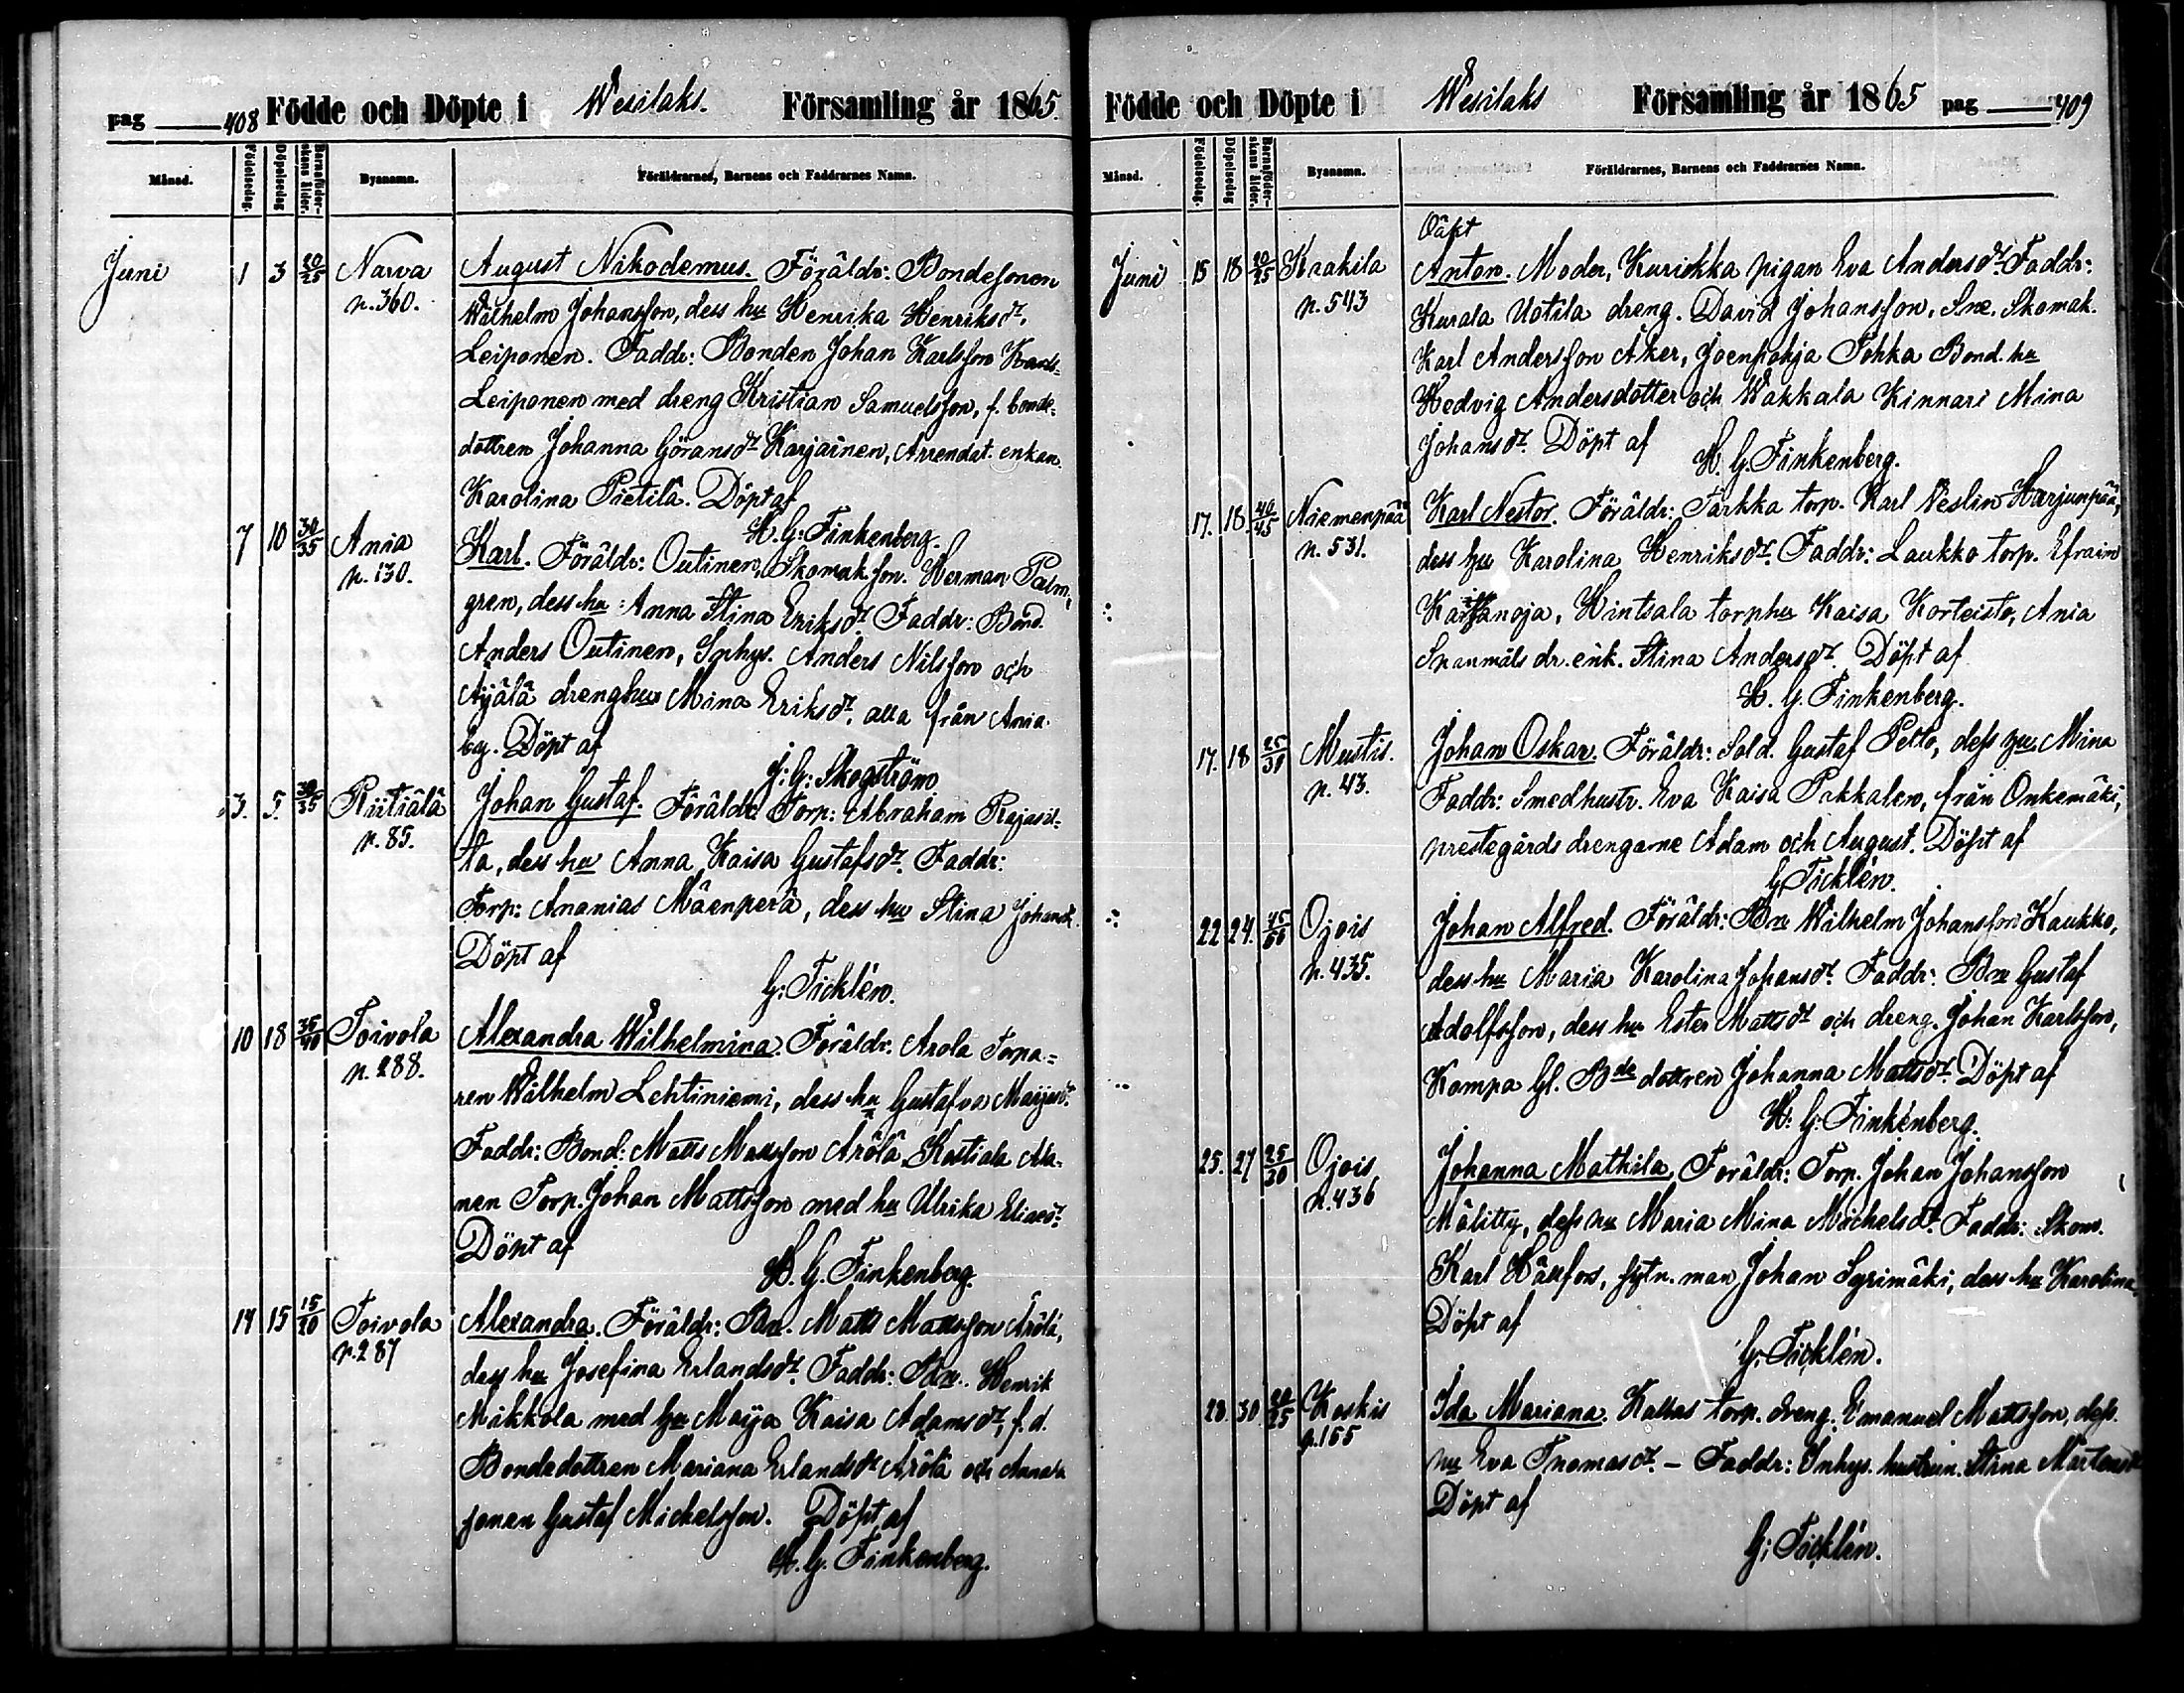 pag 408 Födde och Döpte i Wesilaks. Församling år 1865.
Månad. Födelsedag. Döpelsedag Barnaföderskans ålder. Byanamn. Föräldrarnes, Barnens och Faddrarnes Namn.
Juni 1 3 20/25 Narva August Nikodemus. Föräldr: Bondesonen
p. 360. Wilhelm Johansson, dess hu Henrika Henriksdr.
Leiponen. Faddr: Bonden Johan Karlsson
Leiponen med dreng Kristian Samuelsson, f. bonde-
dottren Johanna Göransdr Karjainen, Arrendat. enkan
Karolina Pietilä. Döpt af
H. G. Finkenberg.
7 10 30/35 Ania Karl. Föräldr: Outinen, Skomak. son. Herman Palm-
p. 130. gren, dess hu: Anna Stina Eriksdr Faddr: Bond.
Anders Outinen, Inhys. Anders Nilsson och
Äijälä drenghu Mina Eriksdr. alla från Ania
by. Döpt af
J: G: Skogström
3. 5. 30/35 Riitiälä Johan Gustaf. Föräldr Torp: Abraham Rajasil-
p. 85. ta, dess hu Anna Kaisa Gustafsdr. Faddr:
Torp: Ananias Mäenperä, dess hu Stina Johansdr.
Döpt af
G: Ticklén.
10 18 35/40 Toivola Alexandra Wilhelmina. Föräldr. Arola Torpa-
p. 288. ren Wilhelm Lehtiniemi, dess hu Gustafva
Faddr: Bond: Matts Mattsson Arölä
nen Torp. Johan Mattsson med hu Ulrika Eliaedr.
Döpt af
H. G. Finkenberg.
14 15 15/20 Toivola Alexandra. Föräldr: Bn. Matts Mattsson Arölä,
p. 287 dess hu Josefina Erlandsdr. Faddr: Bn. Henrik
Mikkola med hu Maija Kaisa Adamsdr, f. d.
Bondedottren Mariana Erlandsdr Arölä och
sonen Gustaf Michelsson. Döpt af
H. G. Finkenberg.
Födde och Döpte i Wesilaks Församling år 1865 pag 409
Månad. Födelsedag. Döpelsedag Barnaföderskans ålder. Byanamn. Föräldrarnes, Barnens och Faddrarnes Namn.
Oäkt
Juni 15 18 20/25 Krakila Anton. Moder, Kuriokka pigan Eva Andersdr. Faddr:
p. 543 Kurala Uotila dreng. David Johansson, Sne. Skomak.
Karl Andersson Åker, Joenpohja Tohka Bond. hu
Hedvig Andersdotter och Wakkala Kinnari Mina
Johansdr. Döpt af H. G. Finkenberg.
17. 18 40/45 Niemenpää Karl Nestor. Föräldr: Tarkka torp. Karl Neslin Harjunpää,
p. 531. dess hu Karolina Henriksdr. Faddr: Laukko torp. Efraim
Hintsala torphu Kaisa Korteisto, Ania
Spanmåls dr. enk. Stina Andersdr. Döpt af
H. G. Finkenberg.
17. 18 25/30 Mustis. Johan Oskar. Föräldr: Sold. Gustaf Pelto, dess hu Mina
p. 43. Faddr: Smedhustr. Eva Kaisa Pakkalen, från Onkemäki,
prestegårds drengarne Adam och August. Döpt af
G. Ticklén.
22 24. 45/50 Ojois Johan Alfred. Föräldr: Bn Wilhelm Johansson Kaukko,
p. 435. dess hu Maria Karolina Johansdr. Faddr: Bn Gustaf
Adolfsson, dess hu Ester Mattsdr och dreng. Johan Karlsson,
Kompa Gl. Bde dottren Johanna Mattsdr. Döpt af
H: G: Finkenberg.
25. 27 25/30 Ojois Johanna Mathila, Föräldr: Torp. Johan Johansson
p. 436 Mälitty, dess hu Maria Mina Michelsdr. Faddr: Skom.
Karl Hällfors, sytn. man Johan Syrimäki, dess hu Karolina
Döpt af
G. Ticklén.
28. 30. 20/25 Koskis Ida Mariana. Kaltas torp. dreng. Emanuel Mattsson, dess
p. 155 hu Eva Thomasdr. – Faddr: Inhys. hustrun. Stina Mårtensdr
Döpt af
G: Ticklén.